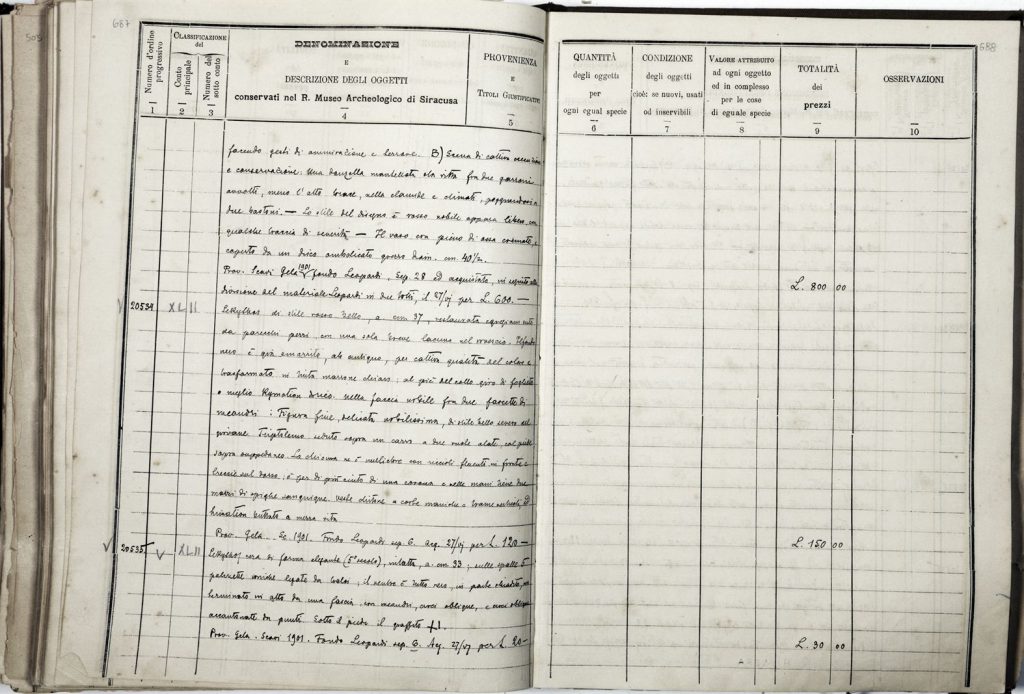 687
505
Numero d'ordine progressivo
1
CLASSIFICAZIONE
del
Conto principale
2
Numero del sotto conto
3
DENOMINAZIONE
E
DESCRIZIONE DEGLI OGGETTI
conservati nel R. Museo Archeologico di Siracusa
4
PROVENIENZA
E
TITOLI GIUSTIFICATIVI
5
facendo gesti di ammirazione e terrore. B) Scena di cattiva
e conservazione: Una donzella mantellata sta ritta fra due garzoni
avvolti, meno l'alto, nella clamide e himati,
due bastoni. — Lo stile del disegno è rosso nobile appena libero, con
qualche traccia di severità — Il vaso era pieno di ossa cremate, e
coperto da un disco grosso diam. cm. 40½.
Prov. Scavi Gela 1901 (fondo Leopardi, Sep. 28 ed acquistato, in seguito alla
divisione del materiale Leopardi in due lotti, il 27/vj per L. 600. —
20534 XLII Lekythos di stile rosso bello, a. cm 37, restaurata
da parecchi pezzi, con una sola breve lacuna nel rovescio. Il fondo
nero è già smarrito, ab antiquo, per cattiva qualità del colore e
trasformato in tinta marrone chiaro; al piè del collo giro di foglette
o meglio Kymation dorico. Nella faccia nobile fra due fascette di
meandri: Figura fine, delicata nobilissima, di stile bello severo del
giovane Triptolemo seduto sopra un carro a due ruote alate, col piede
sopra suppedaneo. La chioma ne è con riccioli fluenti in fronte e
treccie sul dorso; è per di più cinto di una corona e nelle mani tiene due
mazzi di spighe sanguigne. Veste chitone a corte maniche e trame verticali, ed
himation buttato a mezza vita
Prov. Gela. Sc. 1901. Fondo Leopardi sep. 6. Acq. 27/vj per L. 120 —
20535 XLII Lekythos di forma elegante (5° secolo), intatta, a. cm 33; sulle spalle 5
palmette ioniche legate da tralci; il ventre è tutto nero, in parte
terminato in alto da una fascia con meandri, croci oblique, e croci oblique
accantonate da punti. Sotto il piede il graffito
Prov. Gela. Scavi 1901. Fondo Leopardi sep. 6. Acq. 27/vj per L. 20 —
688
QUANTITÀ
degli oggetti
per
ogni egual specie
6
CONDIZIONE
degli oggetti
cioè: se nuovi, usati
od inservibili
7
VALORE ATTRIBUITO
ad ogni oggetto
ed in complesso
per le cose
di eguale specie
8
TOTALITÀ
dei
prezzi
9
OSSERVAZIONI
10
L. 800 00
L. 150 00
L. 30 00